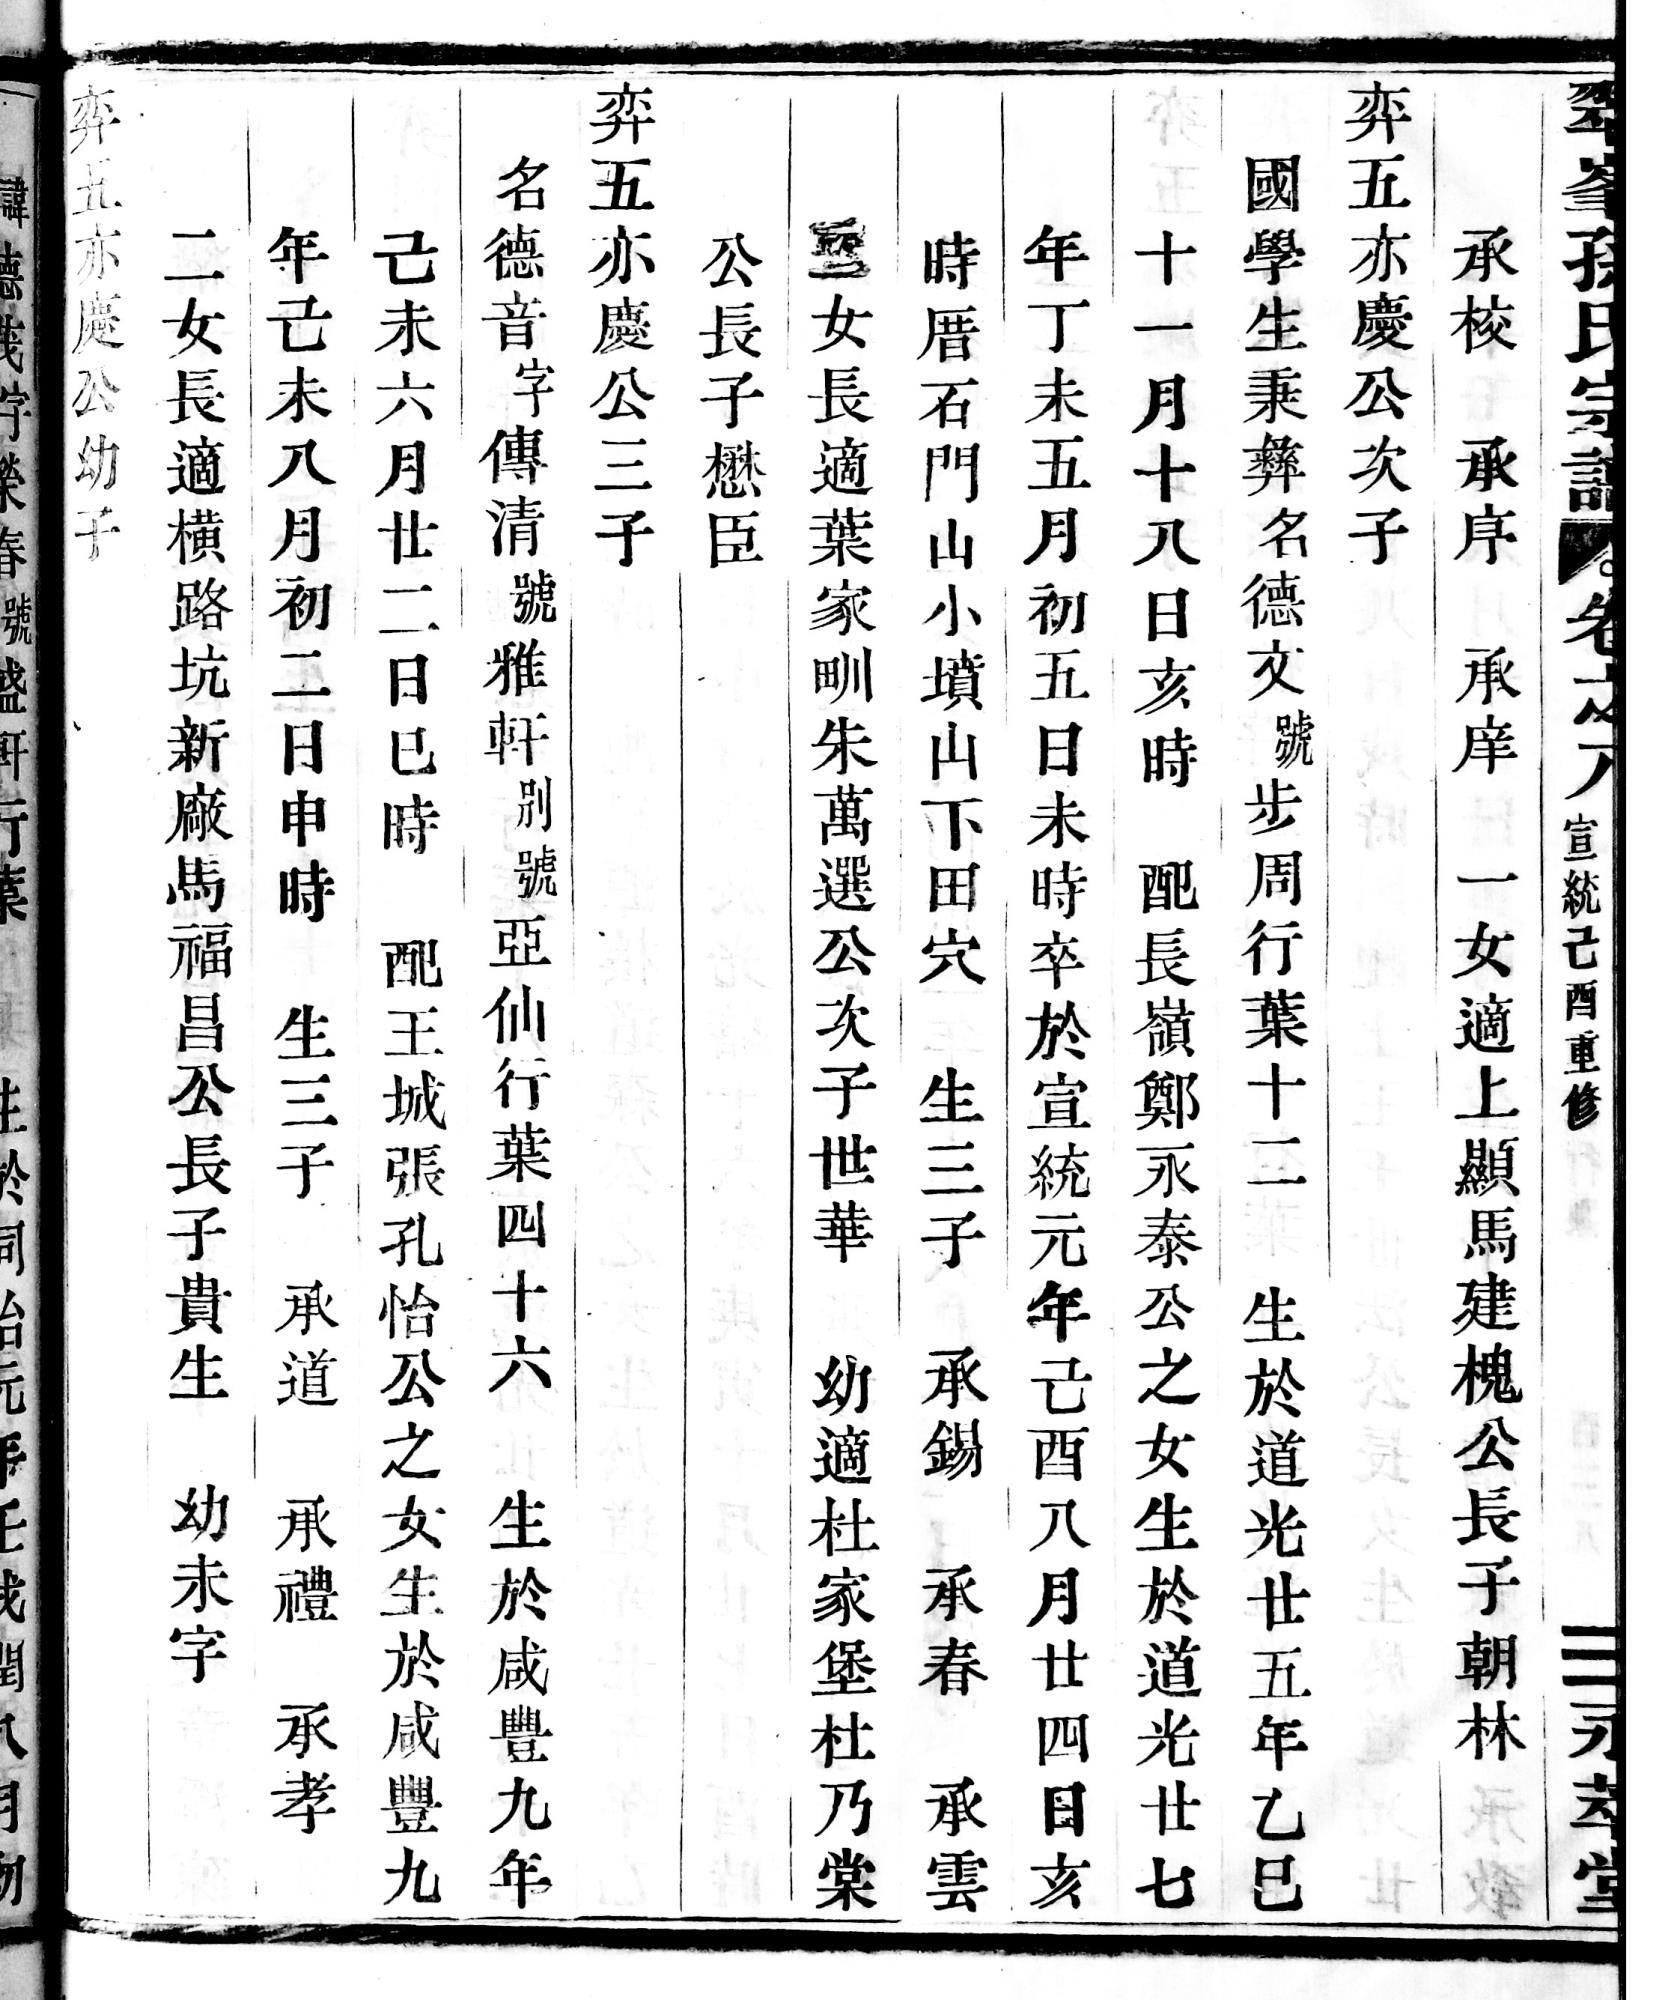 孫氏宗譜 卷之八 宣統己酉重修 三 永萃堂
承校 承序 承庠 一女適上顯馬建槐公長子朝林
弈五亦慶公次子
國學生秉彝名德文號步周行葉十二 生於道光廿五年乙巳
十一月十八日亥時 配長嶺鄭永泰公之女生於道光廿七
年丁未五月初五日未時卒於宣統元年己酉八月廿四日亥
時厝石門山小墳山下田穴 生三子 承錫 承春 承雲
女長適葉家甽朱萬選公次子世華 幼適杜家堡杜乃棠
公長子懋臣
弈五亦慶公三子
名德音字傳清號雅軒別號亞仙行葉四十六 生於咸豐九年
己未六月廿二日巳時 配王城張孔怡公之女生於咸豐九
年己未八月初二日申時 生三子 承道 承禮 承孝
二女長適橫路坑新廠馬福昌公長子貴生 幼未字
弈五亦慶公幼子
號盛軒行葉 生於同治元年壬戌閏八月初